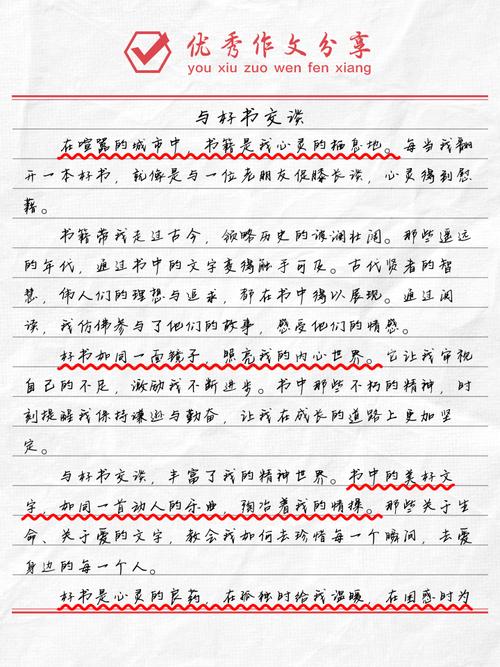 优秀作文分享
you xiu zuo wen fen xiang
与好书交谈
在喧嚣的城市中，书籍是我心灵的栖息地。每当我翻
开一本好书，就像是与一位老朋友促膝长谈，心灵得到慰
藉。
书籍带我走过古今，领略历史的波澜壮阔。那些遥远
的年代，通过书中的文字变得触手可及。古代贤者的智
慧，伟人们的理想与追求，都在书中得以展现。通过阅
读，我仿佛参与了他们的故事，感受他们的情感。
好书如同一面镜子，照亮我的内心世界。它让我审视
自己的不足，激励我不断进步。书中那些不朽的精神，时
刻提醒我保持谦逊与勤奋，让我在成长的道路上更加坚
定。
与好书交谈，丰富了我的精神世界。书中的美好文
字，如同一首动人的乐曲，陶冶着我的情操。那些关于生
命、关于爱的文字，教会我如何去珍惜每一个瞬间，去爱
身边的每一个人。
好书是心灵的良药，在孤独时给我温暖，在困惑时为